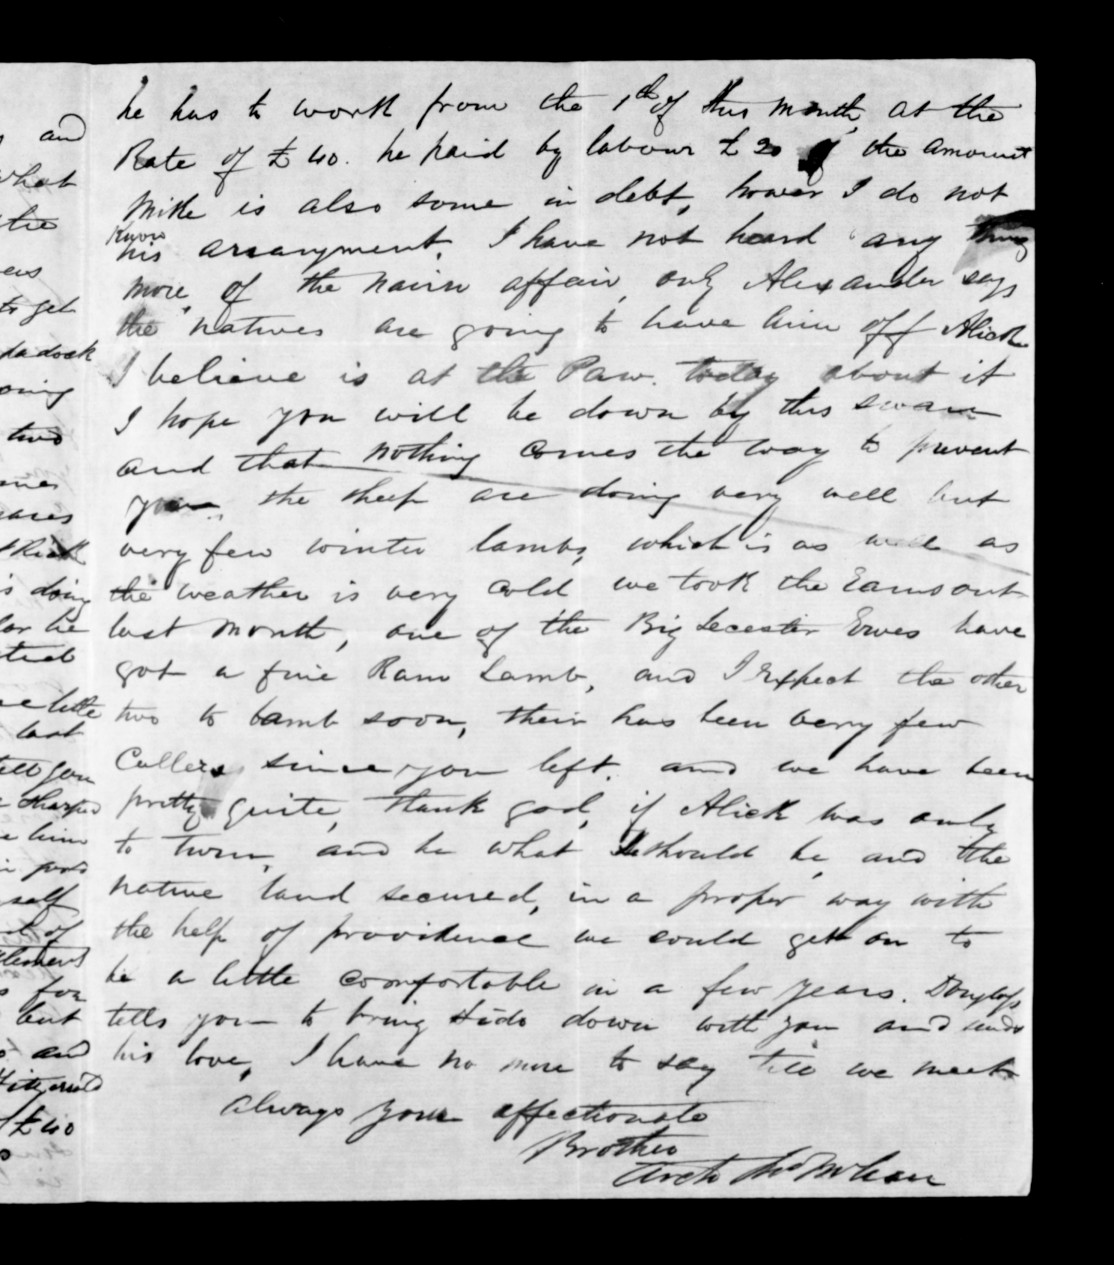 he has to work from the 1th of this month, at the
Rate of £40. he paid by labour £20 of the amount
Mike is also some in debt, hower I do not
Know
his arrangment, I have not heard any thing
more, of the nairn affair, only Alexander says
the natives are going to have him off Alick
I believe is at the Paw. today about it
I hope you will be down by this
and that nothing comes the way to prevent
you, the sheep are doing very well but
very few winter lambs, which is as well as
the weather is very cold we took the Rams out
last month, one of the Big Lecester Ewes have
got a fine Ram Lamb, and I expect the other
two to lamb soon, their has been very few
Callers since you left, and we have been
pretty quite, thank god, if Alick was only
to turn, and be what he should be, and the
native land secured, in a proper way with
the help of providence we could get on to
be a little comfortable in a few years. Douglass
tells you to bring down with you and sends
his love, I have no more to say till we meet
always your affectionate
Brother
Archd McLean
and
what
the
to get
padock
going
two
is doing
little
last
tell you
him
self
of
for
but
and
£40